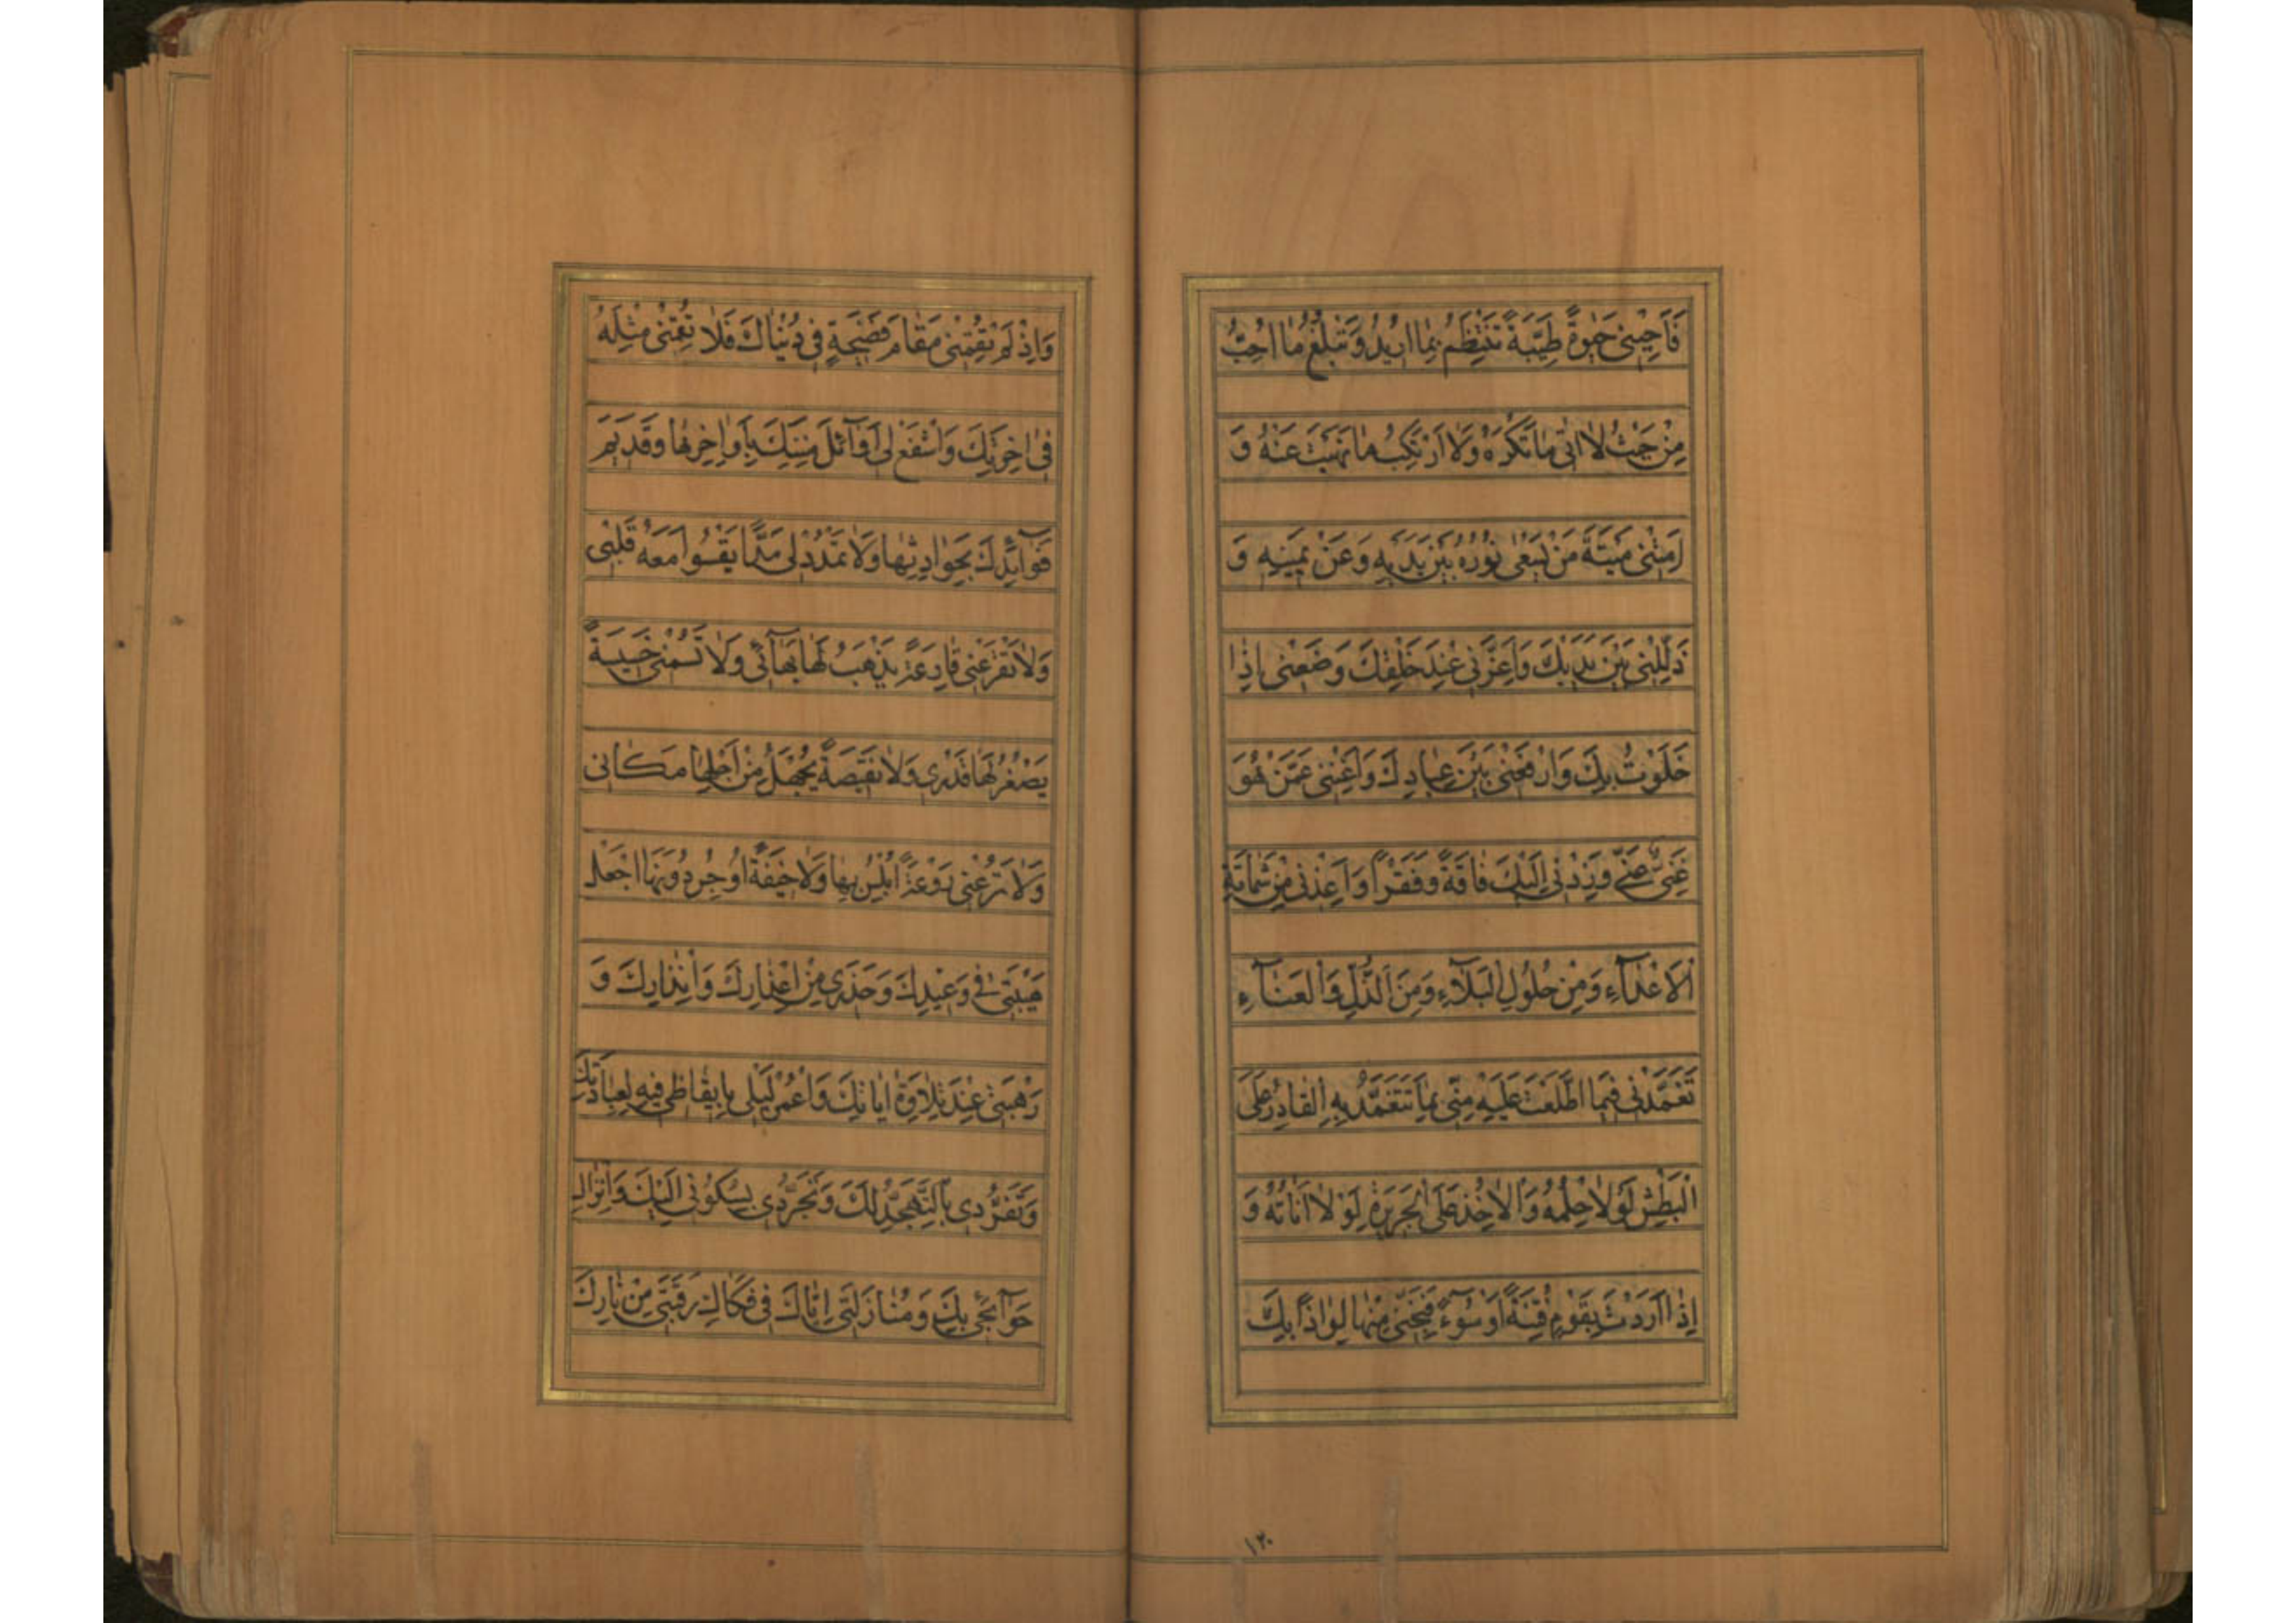 فَاَحْيِنى حَيٰوةً طَيِّبَةً تَنْتَظِمُ بِمٰا اُريدُ وَتَبْلُغُ مٰا اُحِبُّ
مِنْ حَيْثُ لٰا اٰتى مٰا تَكْرَهُ وَلٰا اَرْتَكِبُ مٰا نَهَيْتَ عَنْهُ وَ
اَمِتْنى مَيْتَةَ مَنْ يَسْعٰى نُورُهُ بَيْنَ يَدَيْهِ وَعَنْ يَمينِهِ وَ
ذَلِّلْنى بَيْنَ يَدَيْكَ وَاَعِزَّنى عِنْدَ خَلْقِكَ وَضَعْنى اِذٰا
خَلَوْتُ بِكَ وَارْفَعْنى بَيْنَ عِبٰادِكَ وَاَغْنِنى عَمَّنْ هُوَ
غَنِىٌّ عَنّى وَزِدْنى اِلَيْكَ فٰاقَةً وَفَقْرًا وَاَعِذْنى مِنْ شَمٰاتَةِ
الْاَعْدٰآءِ وَمِنْ حُلُولِ الْبَلٰآءِ وَمِنَ الذُّلِّ وَالْعَنٰآءِ
تَغَمَّدْنى فيمَا اطَّلَعْتَ عَلَيْهِ مِنّى بِمٰا يَتَغَمَّدُ بِهِ الْقٰادِرُ عَلَى
الْبَطْشِ لَوْلٰا حِلْمُهُ وَالْاٰخِذُ عَلَى الْجَريرَةِ لَوْلٰا اَنٰاتُهُ وَ
اِذٰا اَرَدْتَ بِقَوْمٍ فِتْنَةً اَوْ سُوٓءً فَنَجِّنى مِنْهٰا لِوٰاذًا بِكَ
١٢٠
وَاِذْ لَمْ تُقِمْنى مَقٰامَ فَضيحَةٍ فى دُنْيٰاكَ فَلٰا تُقِمْنى مِثْلَهُ
فى اٰخِرَتِكَ وَاشْفَعْ لى اَوٰآئِلَ مِنَنِكَ بِاَوٰاخِرِهٰا وَقَديمَ
فَوٰآئِدِكَ بِحَوٰادِثِهٰا وَلٰا تَمْدُدْ لى مَدًّا يَقْسُوا مَعَهُ قَلْبى
وَلٰا تَقْرَعْنى قٰارِعَةً يَذْهَبُ لَهٰا بَهٰآئى وَلٰا تَسُمْنى خَسيسَةً
يَصْغُرُ لَهٰا قَدْرى وَلٰا نَقيصَةً يُجْهَلُ مِنْ اَجْلِهٰا مَكٰانى
وَلٰا تَرُعْنى رَوْعَةً اُبْلِسُ بِهٰا وَلٰا خيفَةً اُوجِسُ دُونَهَا اجْعَلْ
هَيْبَتى فى وَعيدِكَ وَحَذَرى مِنْ اِعْذٰارِكَ وَاِنْذٰارِكَ وَ
رَهْبَتى عِنْدَ تِلٰاوَةِ اٰيٰاتِكَ وَاعْمُرْ لَيْلى بِايقٰاظى فيهِ لِعِبٰادَتِكَ
وَتَفَرُّدى بِالتَّهَجُّدِ لَكَ وَتَجَرُّدى بِسُكُونى اِلَيْكَ وَاِنْزٰالِ
حَوٰآئِجى بِكَ وَمُنٰازَلَتى اِيّٰاكَ فى فَكٰاكِ رَقَبَتى مِنْ نٰارِكَ